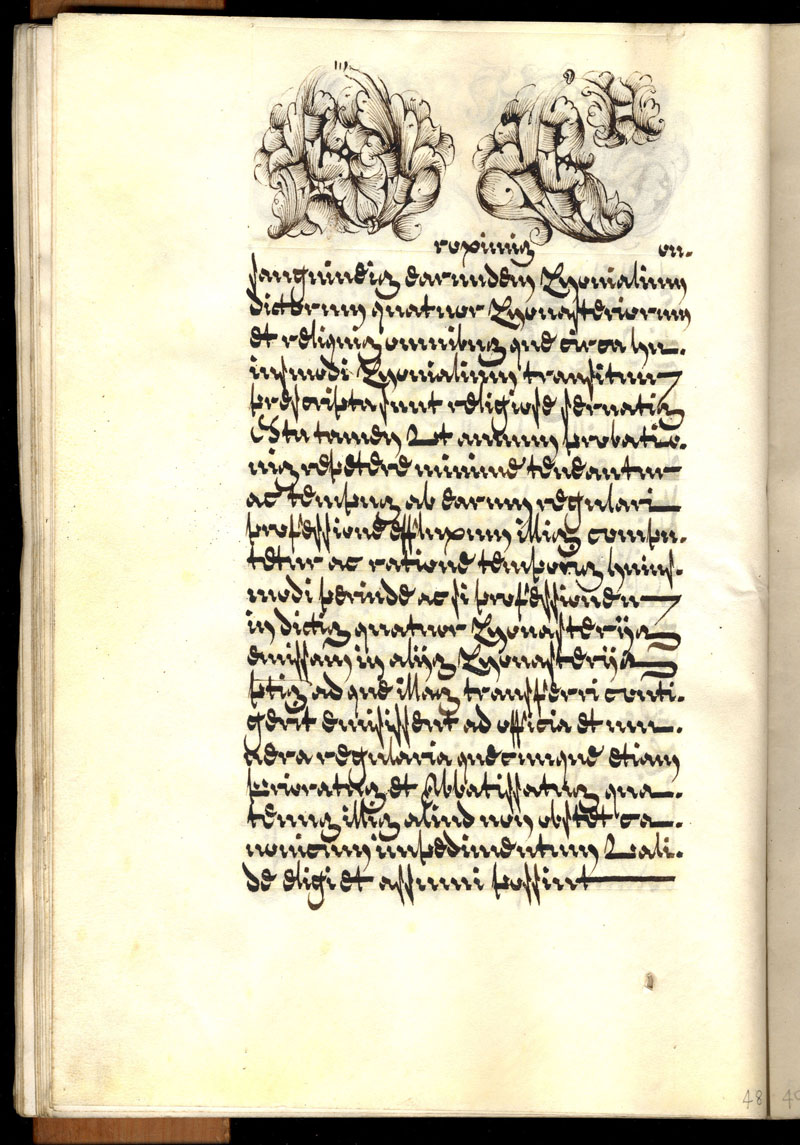 Proximis Con-
sanguineis earundem Monialium
dictorum quatuor Monasteriorum
et reliquis omnibus que circa hu-
iusmodi Monialium transitum
prescripta sunt religiose servatis
Ita tamen Ut annum probatio-
nis repetere minime teneantur
ac tempus ab earum regulari
professione effluxum illis compu-
tetur ac ratione temporis huius-
modi perinde ac si professionem
in dictis quatuor Monasterijs
emissam in alijs Monasterijs
ptis ad que illas transferri conti-
gerit emisissent ad officia et mu-
nera regularia quecunque etiam
prioratus et Abbatissatus qua-
tenus illis aliud non obstet ca-
nonicum impedimentum Vali-
de eligi et assumi possint
48